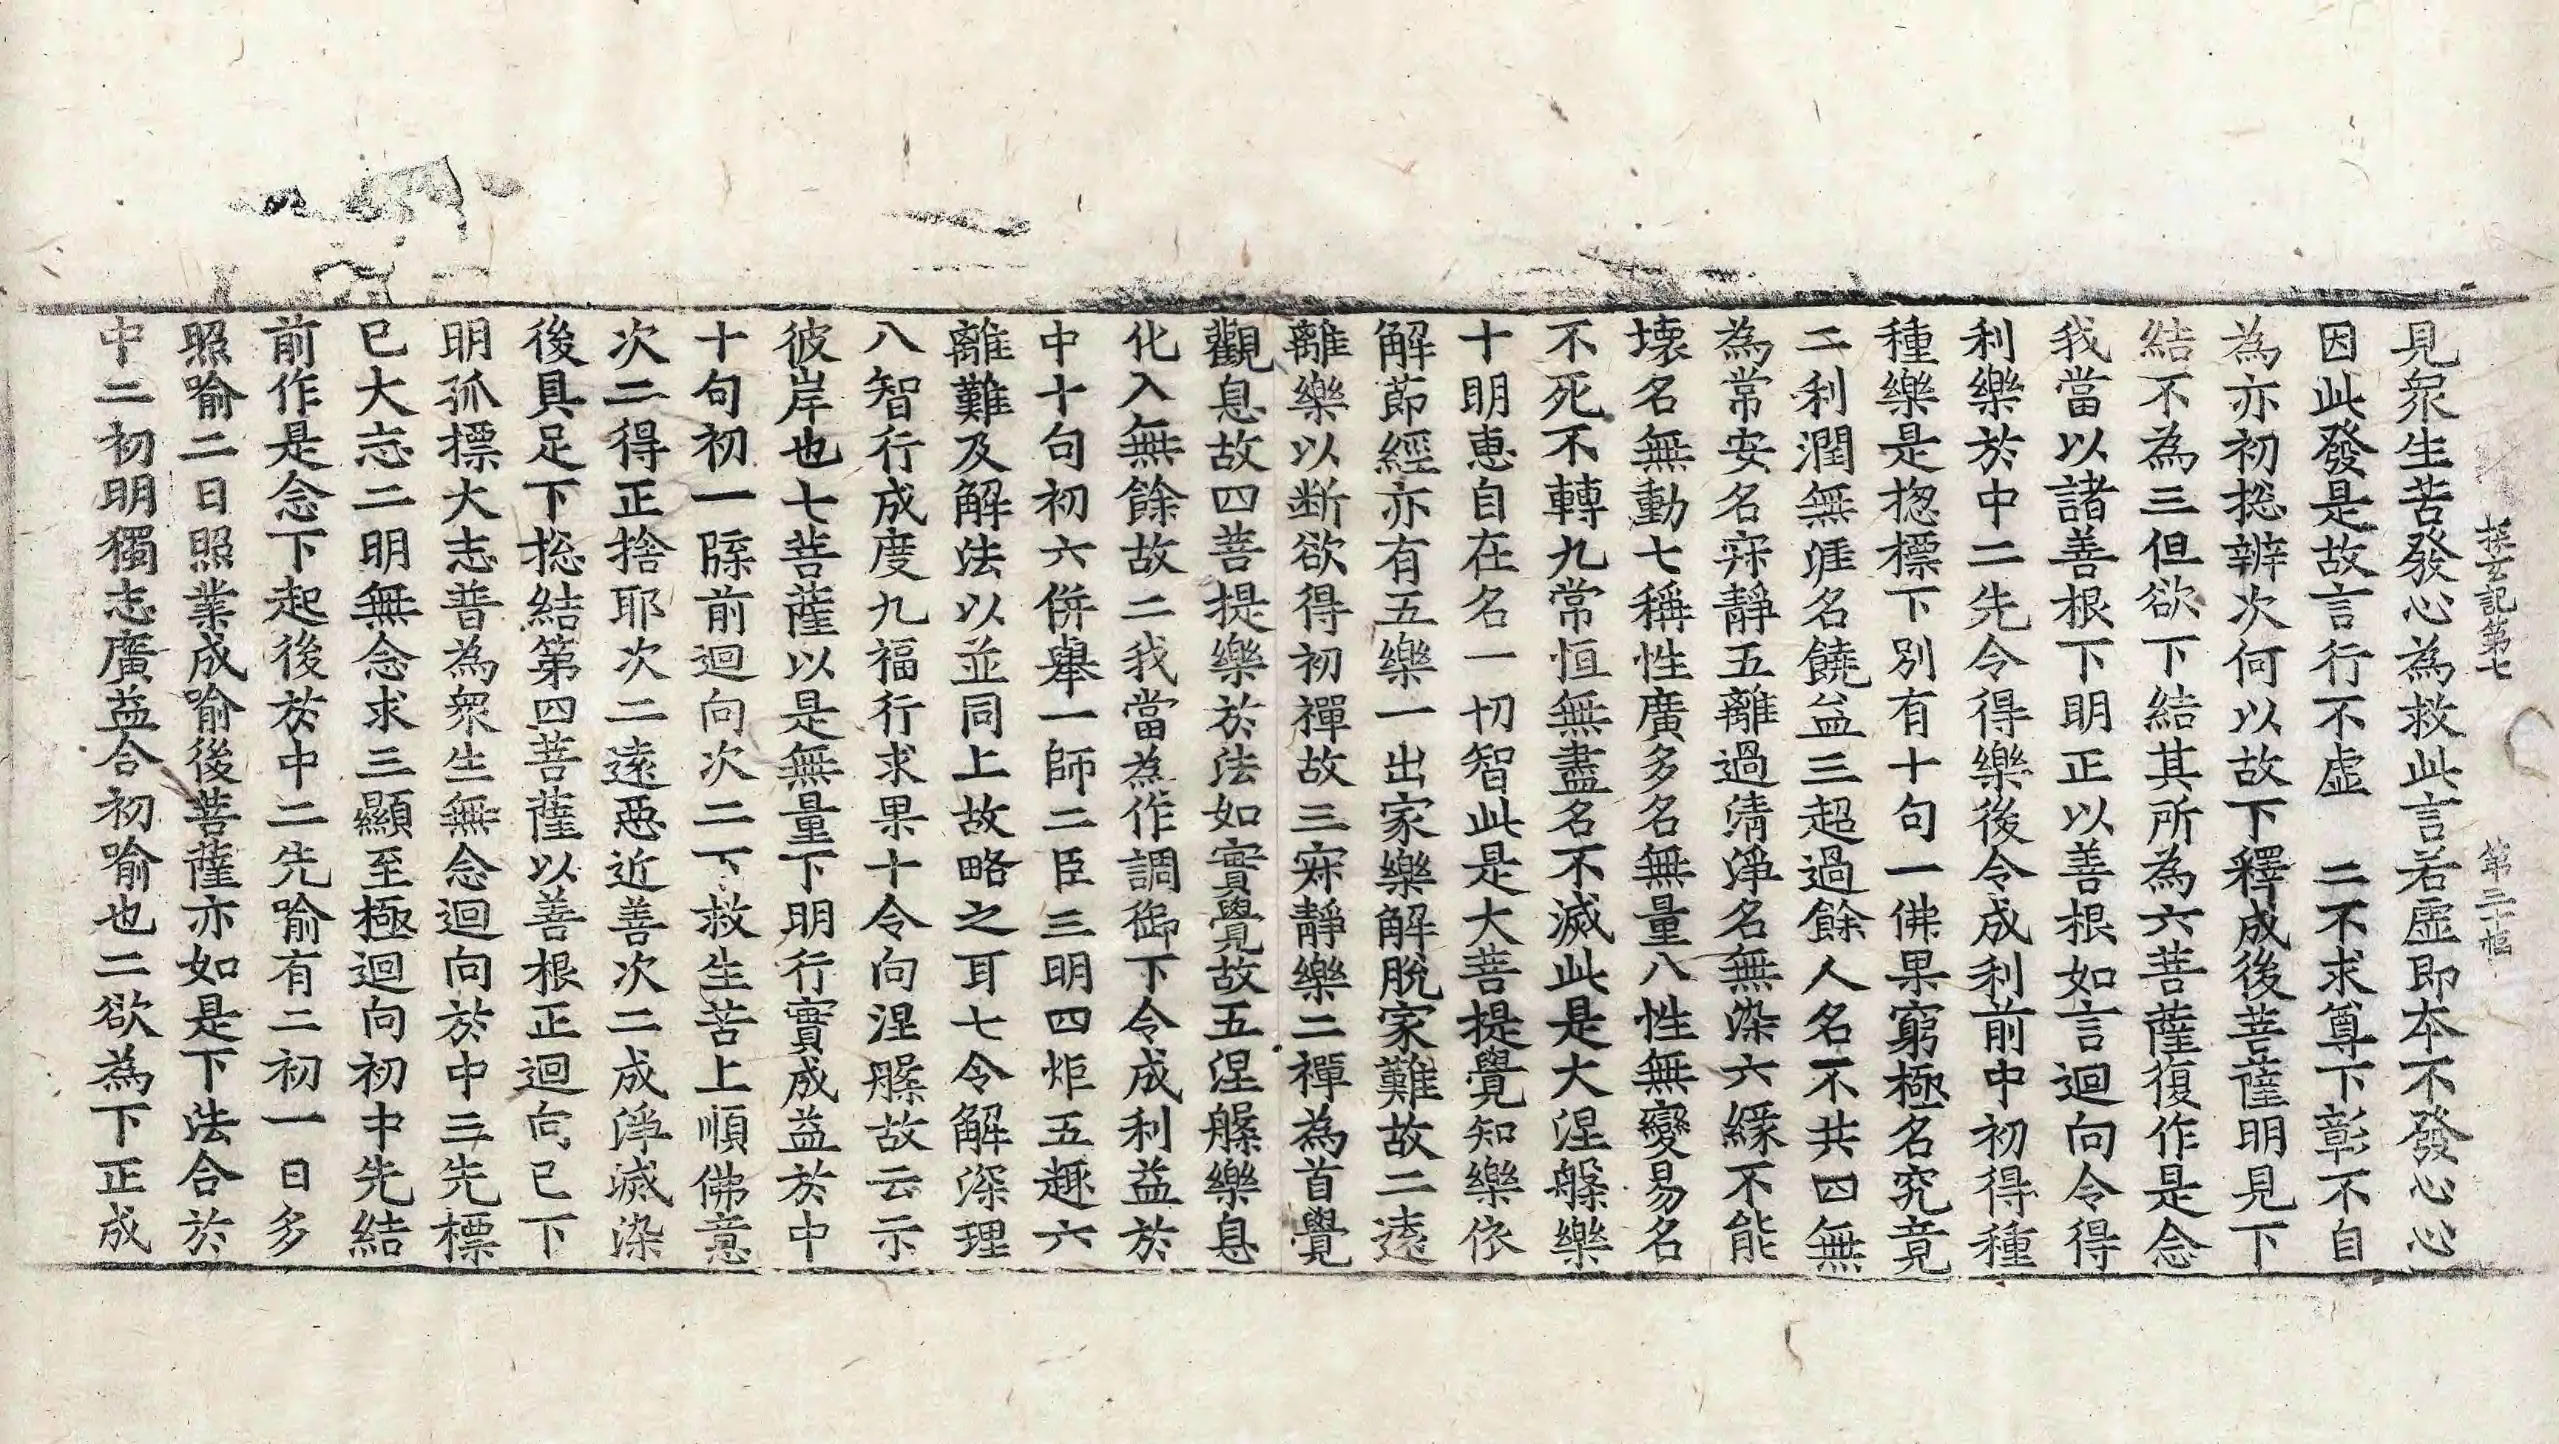 探玄記第七　第二十幅
見衆生苦發心為救此言若虛即本不發心心
因此發是故言行不虛　二不求尊下彰不自
為亦初捴辨次何以故下釋成後菩薩明見下
結不為三但欲下結其所為六菩薩復作是念
我當以諸善根下明正以善根如言迴向令得
利樂於中二先令得樂後令成利前中初得種
種樂是捴標下別有十句一佛果窮極名究竟
二利潤無涯名饒益三超過餘人名不共四無
為常安名寂靜五離過淸淨名無染六緣不能
壞名無動七稱性廣多名無量八性無變易名
不死不轉九常恒無盡名不滅此是大涅槃樂
十明惠自在名一切智此是大菩提覺知樂依
解節經亦有五樂一出家樂解脫家難故二遠
離樂以断欲得初禪故三寂靜樂二禪為首覺
觀息故四菩提樂於法如實覺故五涅槃樂息
化入無餘故二我當為作調御下令成利益於
中十句初六併舉一師二臣三明四炬五趣六
離難及解法以並同上故略之耳七令解深理
八智行成度九福行求果十令向涅槃故云示
彼岸也七菩薩以是無量下明行實成益於中
十句初一牒前迴向次二下救生苦上順佛意
次二得正捨耶次二遠惡近善次二成淨滅染
後具足下捴結第四菩薩以善根正迴向已下
明孤標大志普為衆生無念迴向於中三先標
已大志二明無念求三顯至極迴向初中先結
前作是念下起後於中二先喻有二初一日多
照喻二日照業成喻後菩薩亦如是下法合於
中二初明獨志廣益合初喻也二欲為下正成